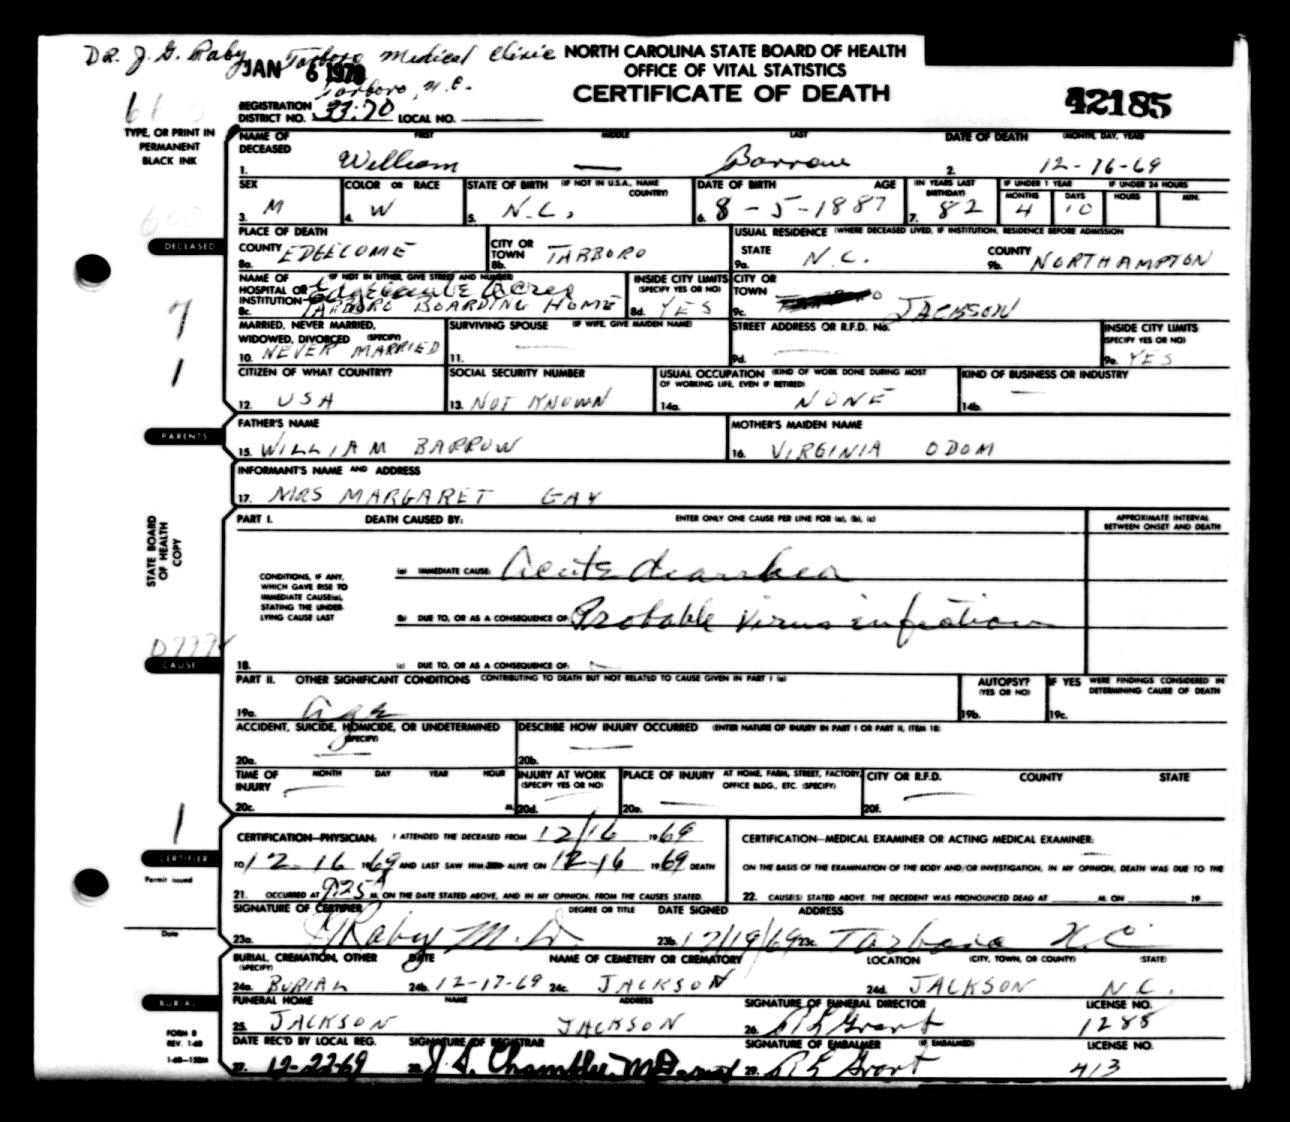 DR. J. G. Raby Tarboro Medical Clinic
Tarboro, N.C.
JAN 6 1970
NORTH CAROLINA STATE BOARD OF HEALTH
OFFICE OF VITAL STATISTICS
CERTIFICATE OF DEATH
42185
REGISTRATION DISTRICT NO. 33-70 LOCAL NO.
TYPE, OR PRINT IN
PERMANENT
BLACK INK
NAME OF DECEASED FIRST MIDDLE LAST DATE OF DEATH (MONTH, DAY, YEAR)
1. William — Barrow 2. 12-16-69
SEX COLOR OR RACE STATE OF BIRTH (IF NOT IN U.S.A., NAME COUNTRY) DATE OF BIRTH AGE (IN YEARS LAST BIRTHDAY) IF UNDER 1 YEAR IF UNDER 24 HOURS
MONTHS DAYS HOURS MIN.
3. M 4. W 5. N.C. 6. 8-5-1887 7. 82 4 10
DECEASED
PLACE OF DEATH USUAL RESIDENCE (WHERE DECEASED LIVED, IF INSTITUTION, RESIDENCE BEFORE ADMISSION
COUNTY 8a. EDGECOME CITY OR TOWN 8b. TARBORO STATE 9a. N.C. COUNTY 9b. NORTHAMPTON
NAME OF HOSPITAL OR INSTITUTION (IF NOT IN EITHER, GIVE STREET AND NUMBER) INSIDE CITY LIMITS (SPECIFY YES OR NO) CITY OR TOWN
8c. Edgecombe Acres
TARBORO BOARDING HOME 8d. YES 9c. JACKSON
MARRIED, NEVER MARRIED, WIDOWED, DIVORCED (SPECIFY) SURVIVING SPOUSE (IF WIFE, GIVE MAIDEN NAME) STREET ADDRESS OR R.F.D. No. INSIDE CITY LIMITS (SPECIFY YES OR NO)
10. NEVER MARRIED 11. — 9d. — 9e. YES
CITIZEN OF WHAT COUNTRY? SOCIAL SECURITY NUMBER USUAL OCCUPATION (KIND OF WORK DONE DURING MOST OF WORKING LIFE, EVEN IF RETIRED) KIND OF BUSINESS OR INDUSTRY
12. USA 13. NOT KNOWN 14a. NONE 14b. —
PARENTS
FATHER'S NAME MOTHER'S MAIDEN NAME
15. WILLIAM BARROW 16. VIRGINIA ODOM
INFORMANT'S NAME AND ADDRESS
17. MRS MARGARET GAY
STATE BOARD
OF HEALTH
COPY
PART I. DEATH CAUSED BY: ENTER ONLY ONE CAUSE PER LINE FOR (a), (b), (c) APPROXIMATE INTERVAL BETWEEN ONSET AND DEATH
CONDITIONS, IF ANY,
WHICH GAVE RISE TO
IMMEDIATE CAUSE(a),
STATING THE UNDER-
LYING CAUSE LAST
(a) IMMEDIATE CAUSE: Acute diarrhea
(b) DUE TO, OR AS A CONSEQUENCE OF: Probable Virus infection
18. (c) DUE TO, OR AS A CONSEQUENCE OF:
CAUSE
PART II. OTHER SIGNIFICANT CONDITIONS CONTRIBUTING TO DEATH BUT NOT RELATED TO CAUSE GIVEN IN PART I (a) AUTOPSY? (YES OR NO) IF YES WERE FINDINGS CONSIDERED IN DETERMINING CAUSE OF DEATH
19a. Age 19b. 19c.
ACCIDENT, SUICIDE, HOMICIDE, OR UNDETERMINED (SPECIFY) DESCRIBE HOW INJURY OCCURRED (ENTER NATURE OF INJURY IN PART I OR PART II, ITEM 18)
20a. — 20b. —
TIME OF INJURY MONTH DAY YEAR HOUR INJURY AT WORK (SPECIFY YES OR NO) PLACE OF INJURY AT HOME, FARM, STREET, FACTORY, OFFICE BLDG., ETC. (SPECIFY) CITY OR R.F.D. COUNTY STATE
20c. — M. 20d. — 20e. — 20f. —
CERTIFICATION—PHYSICIAN: I ATTENDED THE DECEASED FROM 12/16 1969
TO 12-16 1969 AND LAST SAW HIM ALIVE ON 12-16 1969 DEATH
21. OCCURRED AT 9:25 M. ON THE DATE STATED ABOVE, AND IN MY OPINION, FROM THE CAUSES STATED.
CERTIFICATION—MEDICAL EXAMINER OR ACTING MEDICAL EXAMINER:
ON THE BASIS OF THE EXAMINATION OF THE BODY AND/OR INVESTIGATION, IN MY OPINION, DEATH WAS DUE TO THE
22. CAUSE(S) STATED ABOVE. THE DECEDENT WAS PRONOUNCED DEAD AT M. ON 19
CERTIFIER
Permit issued
Date
SIGNATURE OF CERTIFIER DEGREE OR TITLE DATE SIGNED ADDRESS
23a. JGRaby M.D. 23b. 12/19/69 23c. Tarboro N.C.
BURIAL, CREMATION, OTHER (SPECIFY) DATE NAME OF CEMETERY OR CREMATORY LOCATION (CITY, TOWN, OR COUNTY) (STATE)
24a. BURIAL 24b. 12-17-69 24c. JACKSON 24d. JACKSON N.C.
BURIAL
FUNERAL HOME NAME ADDRESS SIGNATURE OF FUNERAL DIRECTOR LICENSE NO.
25. JACKSON JACKSON 26. R L Grant 1288
FORM 8
REV. 1-68
1-68—150M
DATE REC'D BY LOCAL REG. SIGNATURE OF REGISTRAR SIGNATURE OF EMBALMER (IF EMBALMED) LICENSE NO.
27. 12-22-69 28. J. S. Chamblee 29. R L Grant 413